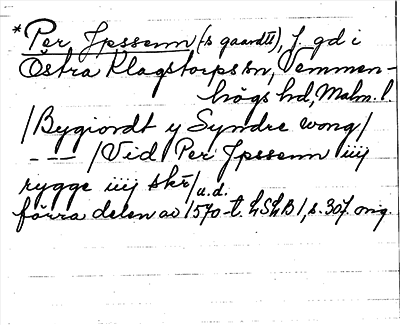 *Per Jpssenn (-s gaardt), f. gd i
Östra Klagstorps sn, Vemmen-
högs hd, Malm. l.
/Bygiordt y Syndre wong/
--- /Vid Per Jpssenn iiij
rygge iiij skr/ u.d.
förra delen av 1570-t. LSLB 1, s. 307. orig.